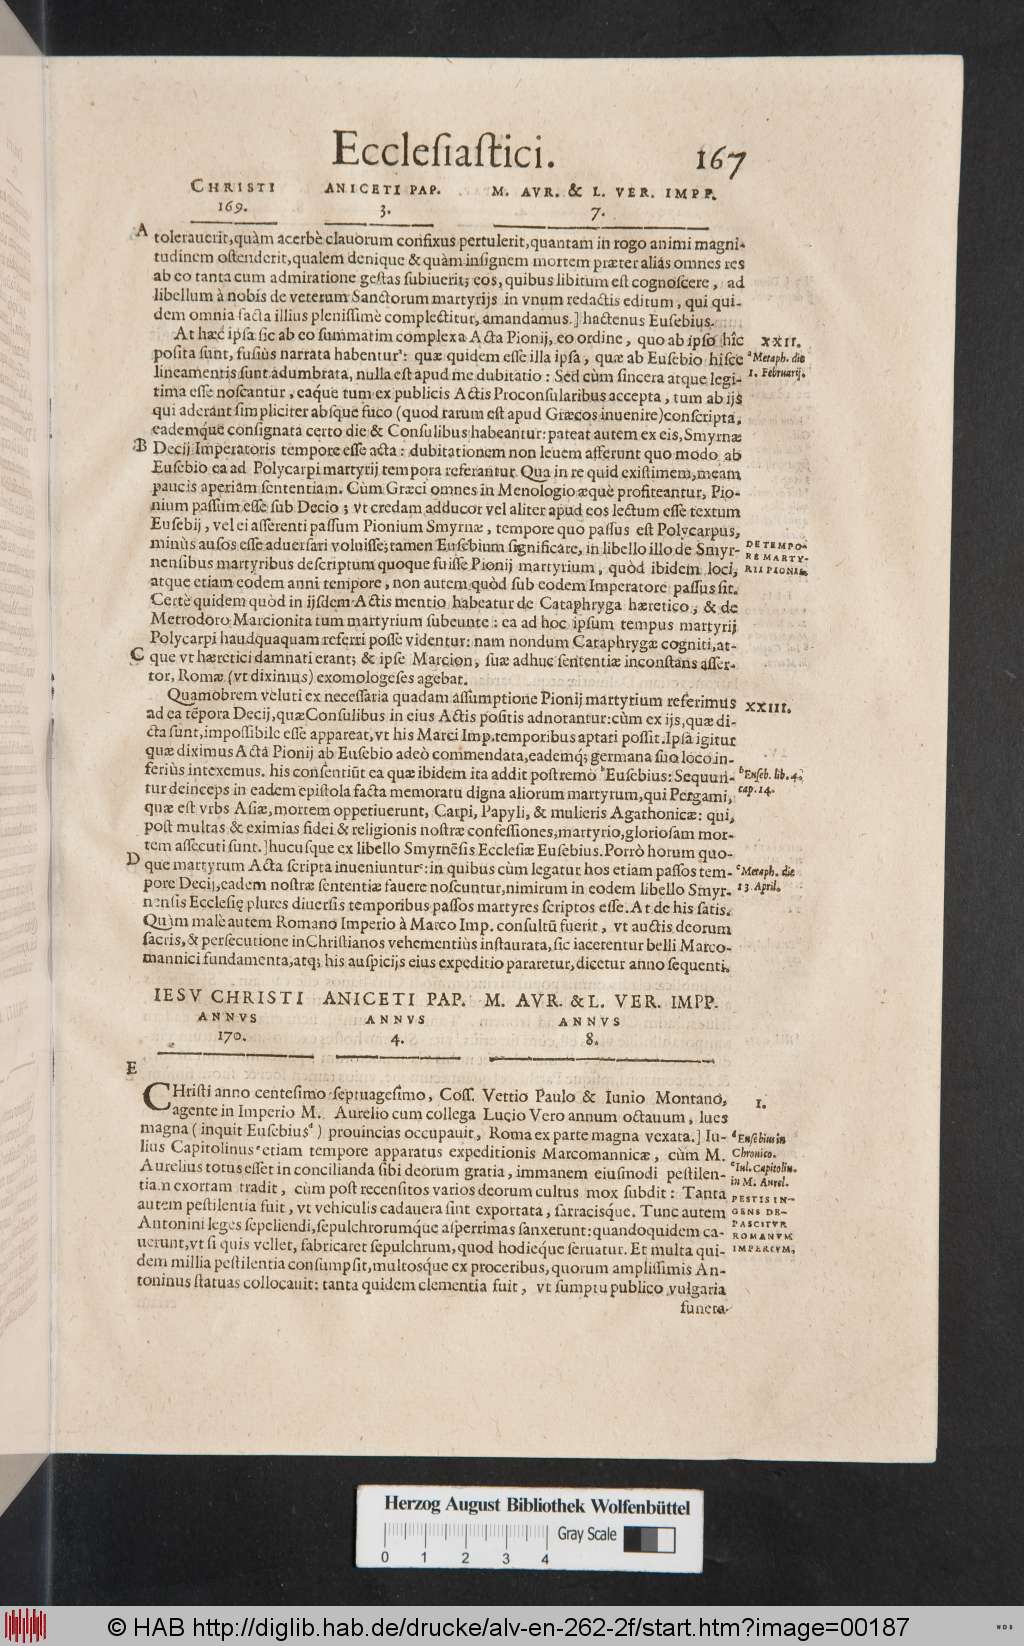 Ecclesiastici. 167
CHRISTI ANICETI PAP. M. AVR. & L. VER. IMPP.
169. 3. 7.
A tolerauerit, quàm acerbè clauorum confixus pertulerit, quantam in rogo animi magni-
tudinem ostenderit, qualem denique & quàm insignem mortem præter aliàs omnes res
ab eo tanta cum admiratione gestas subiuerit; eos, quibus libitum est cognoscere, ad
libellum à nobis de veterum Sanctorum martyrijs in vnum redactis editum, qui qui-
dem omnia facta illius plenissimè complectitur, amandamus.] hactenus Eusebius.
At hæc ipsa sic ab eo summatim complexa Acta Pionij, eo ordine, quo ab ipso hîc
XXII.
posita sunt, fusiùs narrata habentur ᵃ: quæ quidem esse illa ipsa, quæ ab Eusebio hisce
ᵃ Metaph. die
lineamentis sunt adumbrata, nulla est apud me dubitatio: Sed cùm sincera atque legi-
1. Februarij.
tima esse noscantur, eaq́ue tum ex publicis Actis Proconsularibus accepta, tum ab ijs
qui aderant simpliciter absque fuco (quod rarum est apud Græcos inuenire) conscripta,
eademq́ue consignata certo die & Consulibus habeantur: pateat autem ex eis, Smyrnæ
B Decij Imperatoris tempore esse acta: dubitationem non leuem afferunt quo modo ab
Eusebio ea ad Polycarpi martyrij tempora referantur. Qua in re quid existimem, meam
paucis aperiam sententiam. Cùm Græci omnes in Menologio æquè profiteantur, Pio-
nium passum esse sub Decio; vt credam adducor vel aliter apud eos lectum esse textum
Eusebij, vel ei asserenti passum Pionium Smyrnæ, tempore quo passus est Polycarpus,
minùs ausos esse aduersari voluisse; tamen Eusebium significare, in libello illo de Smyr-
DE TEMPO-
nensibus martyribus descriptum quoque fuisse Pionij martyrium, quòd ibidem loci,
RE MARTY-
RII PIONII.
atque etiam eodem anni tempore, non autem quòd sub eodem Imperatore passus sit.
Certè quidem quòd in ijsdem Actis mentio habeatur de Cataphryga hæretico, & de
Metrodoro Marcionita tum martyrium subeunte: ea ad hoc ipsum tempus martyrij
Polycarpi haudquaquam referri posse videntur: nam nondum Cataphrygæ cogniti, at-
C que vt hæretici damnati erant; & ipse Marcion, suæ adhuc sententiæ inconstans asser-
tor, Romæ (vt diximus) exomologeses agebat.
Quamobrem veluti ex necessaria quadam assumptione Pionij martyrium referimus
XXIII.
ad ea tẽpora Decij, quæ Consulibus in eius Actis positis adnotantur: cùm ex ijs, quæ di-
cta sunt, impossibile esse appareat, vt his Marci Imp. temporibus aptari possit. Ipsa igitur
quæ diximus Acta Pionij ab Eusebio adeò commendata, eademq; germana suo loco in-
feriùs intexemus. his consentiũt ea quæ ibidem ita addit postremò ᵇ Eusebius: Sequun-
ᵇ Euseb. lib. 4.
tur deinceps in eadem epistola facta memoratu digna aliorum martyrum, qui Pergami,
cap. 14.
quæ est vrbs Asiæ, mortem oppetiuerunt, Carpi, Papyli, & mulieris Agathonicæ: qui,
post multas & eximias fidei & religionis nostræ confessiones, martyrio, gloriosam mor-
tem assecuti sunt.] hucusque ex libello Smyrnẽsis Ecclesiæ Eusebius. Porrò horum quo-
D que martyrum Acta scripta inueniuntur ᶜ: in quibus cùm legatur hos etiam passos tem-
ᶜ Metaph. die
pore Decij, eadem nostræ sententiæ fauere noscuntur, nimirum in eodem libello Smyr-
13 April.
nensis Ecclesię plures diuersis temporibus passos martyres scriptos esse. At de his satis.
Quàm malè autem Romano Imperio à Marco Imp. consultũ fuerit, vt auctis deorum
sacris, & persecutione in Christianos vehementiùs instaurata, sic iacerentur belli Marco-
mannici fundamenta, atq; his auspicijs eius expeditio pararetur, dicetur anno sequenti.
IESV CHRISTI ANICETI PAP. M. AVR. & L. VER. IMPP.
ANNVS ANNVS ANNVS
170. 4. 8.
E
CHristi anno centesimo septuagesimo, Coss. Vettio Paulo & Iunio Montano,
I.
agente in Imperio M. Aurelio cum collega Lucio Vero annum octauum, lues
magna (inquit Eusebius ᵈ) prouincias occupauit, Roma ex parte magna vexata.] Iu-
ᵈ Eusebius in
lius Capitolinus ᵉ etiam tempore apparatus expeditionis Marcomannicæ, cùm M.
Chronico.
Aurelius totus esset in concilianda sibi deorum gratia, immanem eiusmodi pestilen-
ᵉ Iul. Capitolin.
in M. Aurel.
tiam exortam tradit, cùm post recensitos varios deorum cultus mox subdit: Tanta
PESTIS IN-
autem pestilentia fuit, vt vehiculis cadauera sint exportata, sarracisque. Tunc autem
GENS DE-
Antonini leges sepeliendi, sepulchrorumq́ue asperrimas sanxerunt: quandoquidem ca-
PASCITVR
ROMANVM
uerunt, vt si quis vellet, fabricaret sepulchrum, quod hodieq́ue seruatur. Et multa qui-
IMPERIVM.
dem millia pestilentia consumpsit, multosque ex proceribus, quorum amplissimis An-
toninus statuas collocauit: tanta quidem clementia fuit, vt sumptu publico vulgaria
funera
Herzog August Bibliothek Wolfenbüttel
Gray Scale
0 1 2 3 4
© HAB http://diglib.hab.de/drucke/alv-en-262-2f/start.htm?image=00187